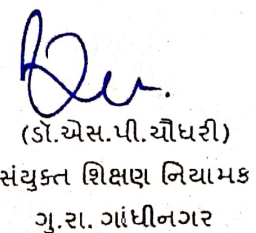 (ડૉ.એસ.પી.ચૌધરી)
સંયુક્ત શિક્ષણ નિયામક
ગુ.રા. ગાંધીનગર